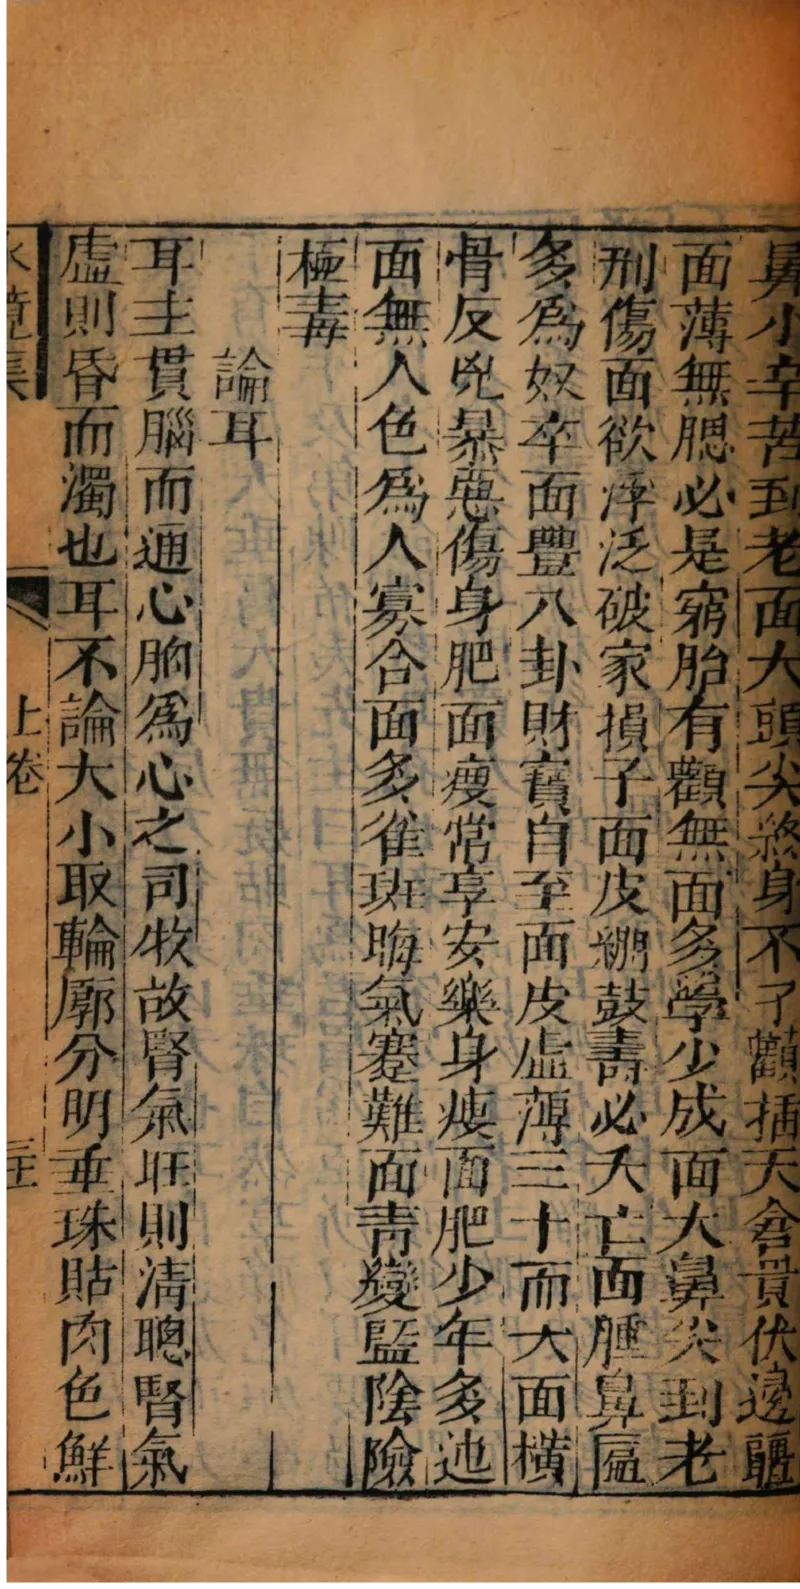 鼻小辛苦到老面大頭尖終身不了顴插天倉貴伏邊疆
面薄無腮必是窮胎有顴無面多學少成面大鼻尖到老
刑傷面欲浮泛破家損子面皮綳鼓壽必夭亡面腫鼻匾
多爲奴卒面豐八卦財寳自至面皮虛薄三十而大面橫
骨反兇暴惡傷身肥面瘦常享安樂身瘦面肥少年多迍
面無人色爲人寡合面多雀斑晦氣蹇難面青變藍陰險
極毒
論耳
耳主貫腦而通心胸爲心之司牧故腎氣旺則淸聰腎氣
虛則昏而濁也耳不論大小取輪廓分明垂珠貼肉色鮮
水鏡集
上卷